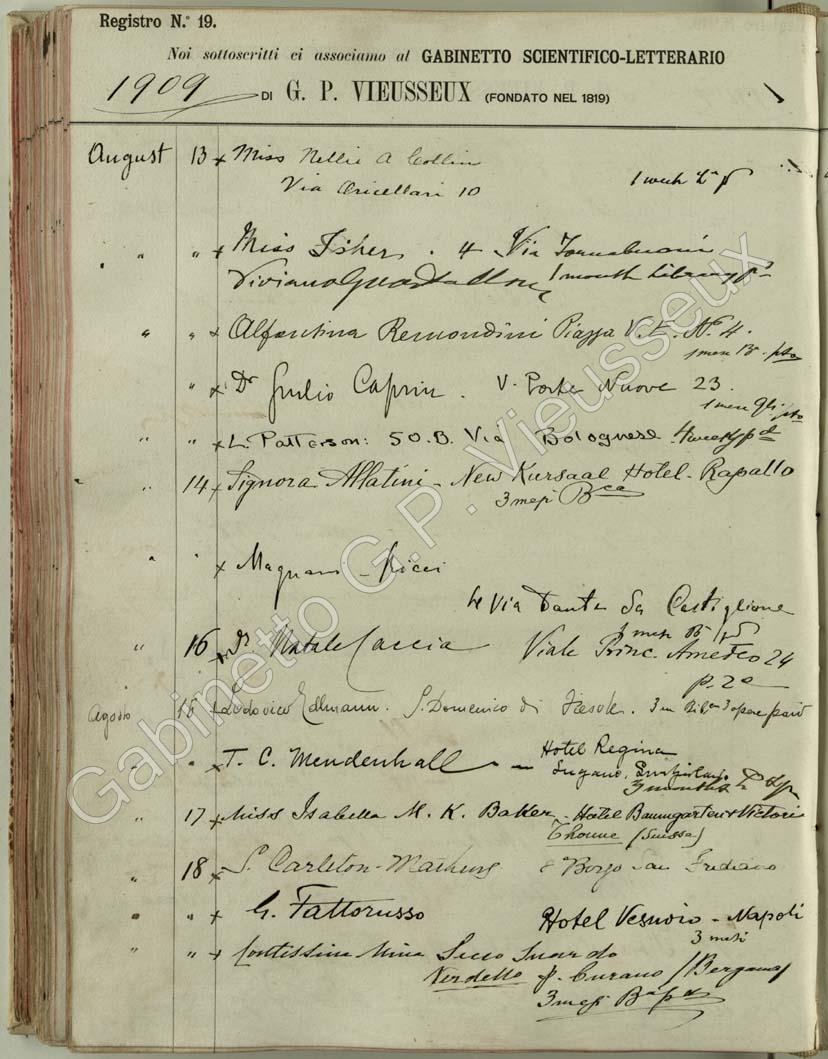 Registro N.º 19.
Noi sottoscritti ci associamo al GABINETTO SCIENTIFICO-LETTERARIO
1909 DI G. P. VIEUSSEUX (FONDATO NEL 1819)
August 13 x Miss Nellie A Collin
Via Oricellari 10 1 week
" " x Miss Isher . 4 Via Tornabuoni
1 month Library
" " x Alfontina Remondini Piazza V. E. Nº 4.
" x Dr Giulio Caprin . V. Ponte Nuove 23.
1 mese
" " x L. Patterson: 50.B. Via Bolognese
" 14 x Signora Allatini - New Kursaal Hotel - Rapallo
3 mesi Bca
" " x Magnani - Ricci
4 Via Dante Da Castiglione
" 16 x Dr Natale Caccia Viale Princ. Amedeo 24
p. 2º
Agosto 16 Ludovico Edlmann. S. Domenico di Fiesole.
" " x T. C. Mendenhall - Hotel Regina
Lugano,
3 months
" 17 x Miss Isabella M. K. Baker - Hotel Baumgarten & Victoria
Thoune (Suissa)
" 18 x S. Carleton-Mathews 8 Borgo San Frediano
" " x G. Fattorusso Hotel Vesuvio - Napoli
3 mesi
" " x Contessina Mina Secco Suardo
Verdello p. Lurano (Bergamo)
3 mesi
Gabinetto G.P. Vieusseux